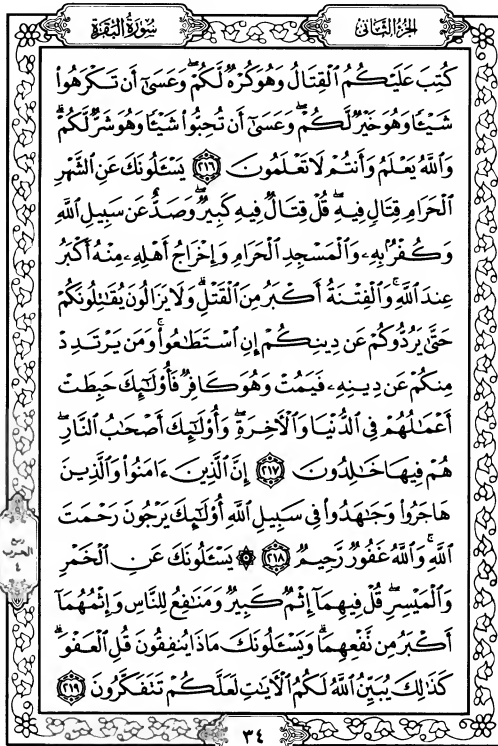 سُورَةُ البَقَرَةِ
الجُزْءُ الثَّانِي
كُتِبَ عَلَيْكُمُ ٱلْقِتَالُ وَهُوَ كُرْهٌ لَّكُمْ ۖ وَعَسَىٰٓ أَن تَكْرَهُوا۟
شَيْـًٔا وَهُوَ خَيْرٌ لَّكُمْ ۖ وَعَسَىٰٓ أَن تُحِبُّوا۟ شَيْـًٔا وَهُوَ شَرٌّ لَّكُمْ ۗ
وَٱللَّهُ يَعْلَمُ وَأَنتُمْ لَا تَعْلَمُونَ ٢١٦ يَسْـَٔلُونَكَ عَنِ ٱلشَّهْرِ
ٱلْحَرَامِ قِتَالٍ فِيهِ ۖ قُلْ قِتَالٌ فِيهِ كَبِيرٌ ۖ وَصَدٌّ عَن سَبِيلِ ٱللَّهِ
وَكُفْرٌۢ بِهِۦ وَٱلْمَسْجِدِ ٱلْحَرَامِ وَإِخْرَاجُ أَهْلِهِۦ مِنْهُ أَكْبَرُ
عِندَ ٱللَّهِ ۚ وَٱلْفِتْنَةُ أَكْبَرُ مِنَ ٱلْقَتْلِ ۗ وَلَا يَزَالُونَ يُقَـٰتِلُونَكُمْ
حَتَّىٰ يَرُدُّوكُمْ عَن دِينِكُمْ إِنِ ٱسْتَطَـٰعُوا۟ ۚ وَمَن يَرْتَدِدْ
مِنكُمْ عَن دِينِهِۦ فَيَمُتْ وَهُوَ كَافِرٌ فَأُو۟لَـٰٓئِكَ حَبِطَتْ
أَعْمَـٰلُهُمْ فِى ٱلدُّنْيَا وَٱلْـَٔاخِرَةِ ۖ وَأُو۟لَـٰٓئِكَ أَصْحَـٰبُ ٱلنَّارِ ۖ
هُمْ فِيهَا خَـٰلِدُونَ ٢١٧ إِنَّ ٱلَّذِينَ ءَامَنُوا۟ وَٱلَّذِينَ
هَاجَرُوا۟ وَجَـٰهَدُوا۟ فِى سَبِيلِ ٱللَّهِ أُو۟لَـٰٓئِكَ يَرْجُونَ رَحْمَتَ
ٱللَّهِ ۚ وَٱللَّهُ غَفُورٌ رَّحِيمٌ ٢١٨ ۞ يَسْـَٔلُونَكَ عَنِ ٱلْخَمْرِ
وَٱلْمَيْسِرِ ۖ قُلْ فِيهِمَآ إِثْمٌ كَبِيرٌ وَمَنَـٰفِعُ لِلنَّاسِ وَإِثْمُهُمَآ
أَكْبَرُ مِن نَّفْعِهِمَا ۗ وَيَسْـَٔلُونَكَ مَاذَا يُنفِقُونَ قُلِ ٱلْعَفْوَ ۗ
كَذَٰلِكَ يُبَيِّنُ ٱللَّهُ لَكُمُ ٱلْـَٔايَـٰتِ لَعَلَّكُمْ تَتَفَكَّرُونَ ٢١٩
ربع
الحزب
٤
٣٤